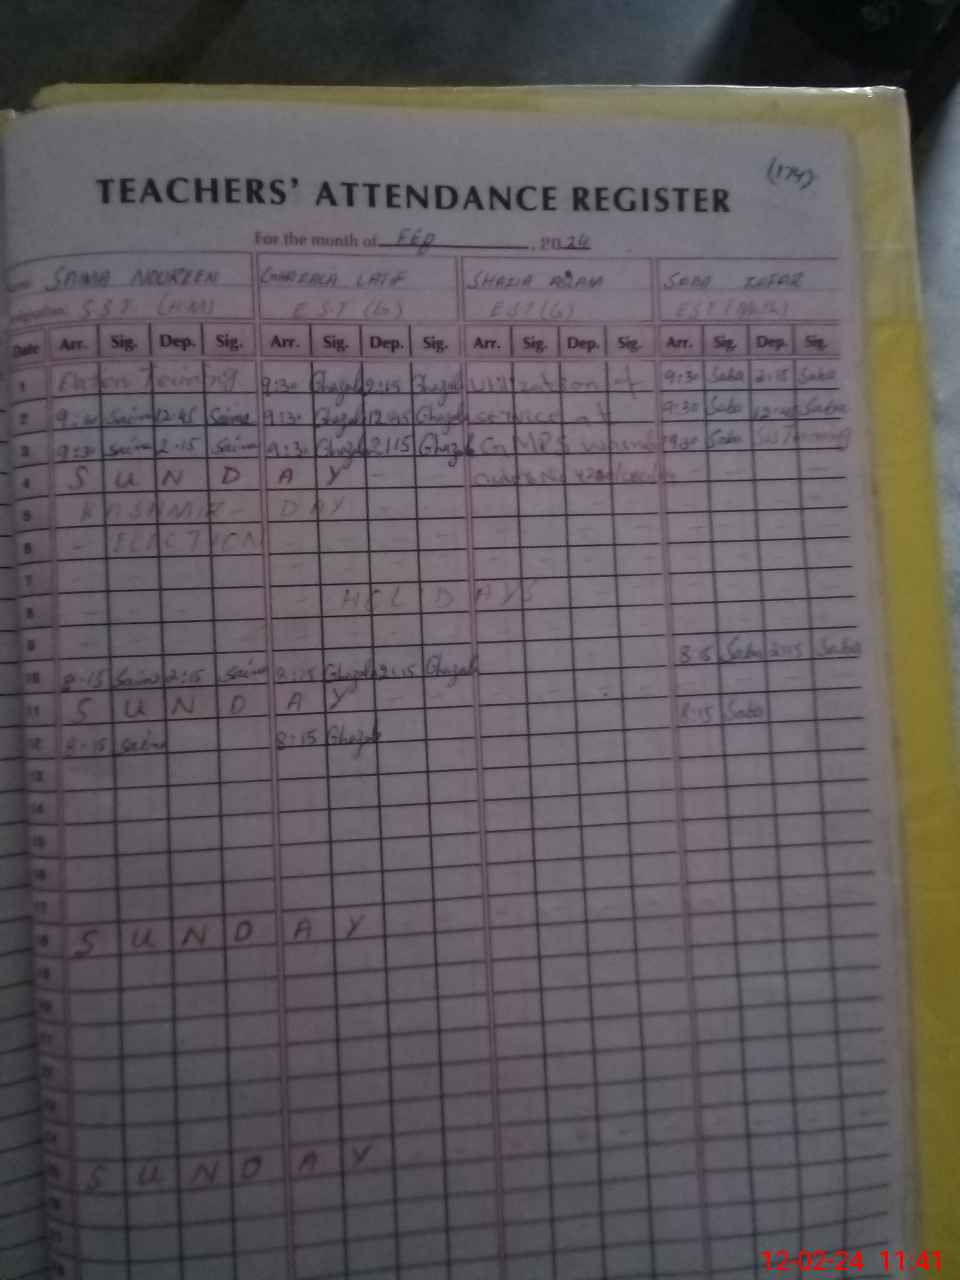 (174)
TEACHERS' ATTENDANCE REGISTER
For the month of FEB, 2024
SAIMA NOUREEN GHAZALA LATIF SHAZIA ASLAM SABA ZAFAR
S.S.T (H.M) E.S.T (G) EST (G) EST (Math)
Date Arr. Sig. Dep. Sig. Arr. Sig. Dep. Sig. Arr. Sig. Dep. Sig. Arr. Sig. Dep. Sig.
1 9:30 Ghazal 2:15 Ghazal Utilization of 9:30 Saba 2:15 Saba
2 9:30 Saima 12:45 Saima 9:30 Ghazal 12:45 Ghazal service at 9:30 Saba 12:45 Saba
3 9:30 Saima 2:15 Saima 9:30 Ghazal 2:15 Ghazal GMPS 9:30 Saba
4 S U N D A Y - - order No
5 KASHMIR - DAY
6 - ELECTION
7
8 HOLIDAYS
9
10 8:15 Saima 2:15 Saima 8:15 Ghazal 2:15 Ghazal 8:15 Saba 2:15 Saba
11 S U N D A Y
12 8:15 Saima 8:15 Ghazal 8:15 Saba
13
14
15
16
17
18 S U N D A Y
19
20
21
22
23
24
25 S U N D A Y
26
27
12-02-24 11:41